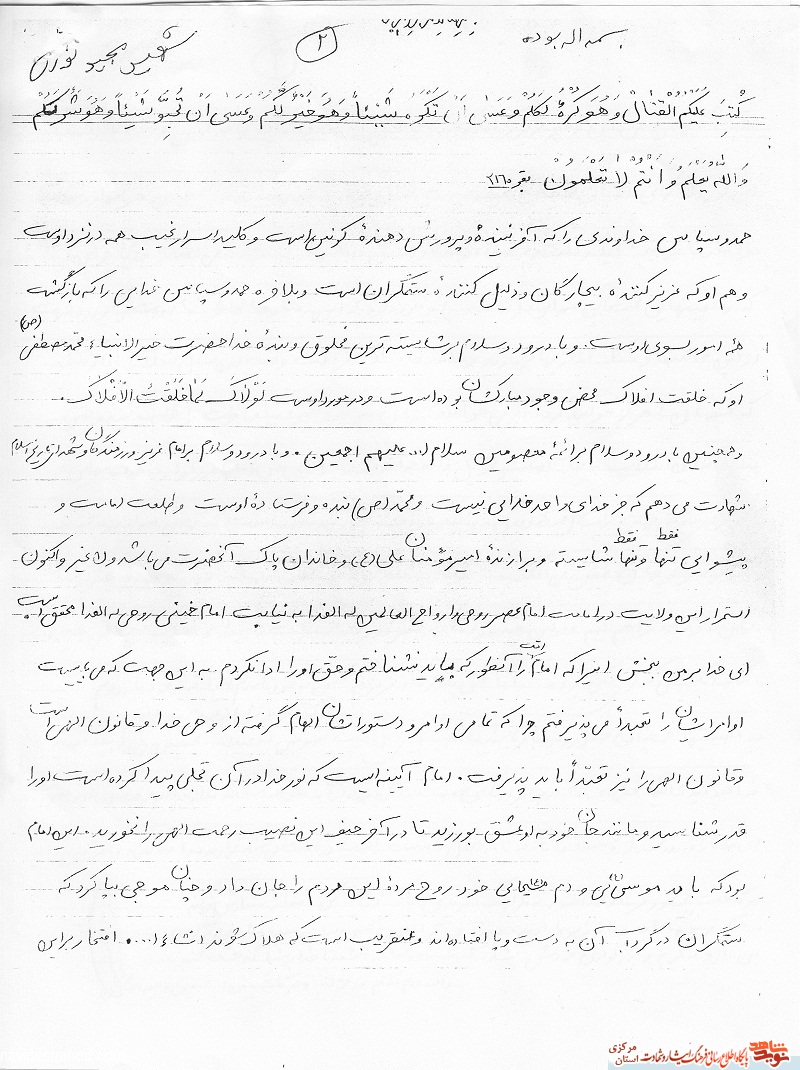 بسمه اله بوده
۲
شهید مجید نوری
كُتِبَ عَلَيكم القتالْ وَ هُوَ كرهٌ لَكُم وَعَسىٰ اَنْ تَكرَهوُ شَيئاً وَهُوَ خَيرٌ لكُم وَعَسىٰ اَنْ تُحِبّوُ شَيْئاً وَهُوَ شَرٌ لَكُم
وَالله يعلَمُ وَ اَنتُم لاٰ تعلَمون بقره ۲۱۶
حمد و سپاس خداوندی را که آفریننده و پرورش دهندهٔ کونین است و کلید اسرار غیب همه در نزد اوست
و هم او که عزیز کنندهٔ بیچارگان و ذلیل کنندهٔ ستمگران است و بلاخره حمد و سپاس خدایی را که بازگشت
همه امور بسوی اوست. و با درود و سلام بر شایسته ترین مخلوق و بندهٔ خدا حضرت خیر الانبیاء محمد مصطفی (ص)
او که خلقت افلاک محض وجود مبارکشان بوده است و در مورد اوست لَوْلاٰکَ لَمٰا خَلَقْتُ الْاَفْلاٰک.
و همچنین با درود و سلام بر ائمهٔ معصومین سلام ا... علیهم اجمعین. و با درود و سلام بر امام عزیز و رزمندگان و شهدای تاریخ اسلام
شهادت می دهم که جز خدای واحد خدایی نیست و محمد (ص) بنده و فرستادهٔ اوست و خلعت امامت و
پیشوایی تنها و تنها فقط - فقط شایسته و برازندهٔ امیر مؤمنان علی (ع) و خاندان پاک آنحضرت می باشد ولاغیر و اکنون
استمرار این ولایت در امامت امام عصر روحی و ارواح العالمین له الفدا به نیابت امام خمینی روحی له الفدا محقق است.
ای خدا بر من ببخش امرا که امام امت را آنطور که باید نشناختم و حق او را ادا نکردم. به این جهت که می بایست
اوامر ایشان را تعبداً می پذیرفتم چرا که تمامی اوامر و دستوراتشان الهام گرفته از وحی خدا و قانون الهی است
و قانون الهی را نیز تعبّداً باید پذیرفت. امام آیینه ایست که نور خدا در آن تجلی پیدا کرده است او را
قدر شناسید و مانند جان خود به او عشق بورزید تا در آخر حیف این نصیب رحمت الهی را نخورید. این امام
بود که با ید موسی ئی و دم عیسایی خود روح مردهٔ این مردم را جان داد و چنان موجی بپا کرد که
ستمگران در گرداب آن به دست و پا افتاده اند و عنقریب است که هلاک شوند انشاء ا.... افتخار بر این
نوید شاهد پایگاه اطلاع رسانی فرهنگ ایثار و شهادت استان مرکزی